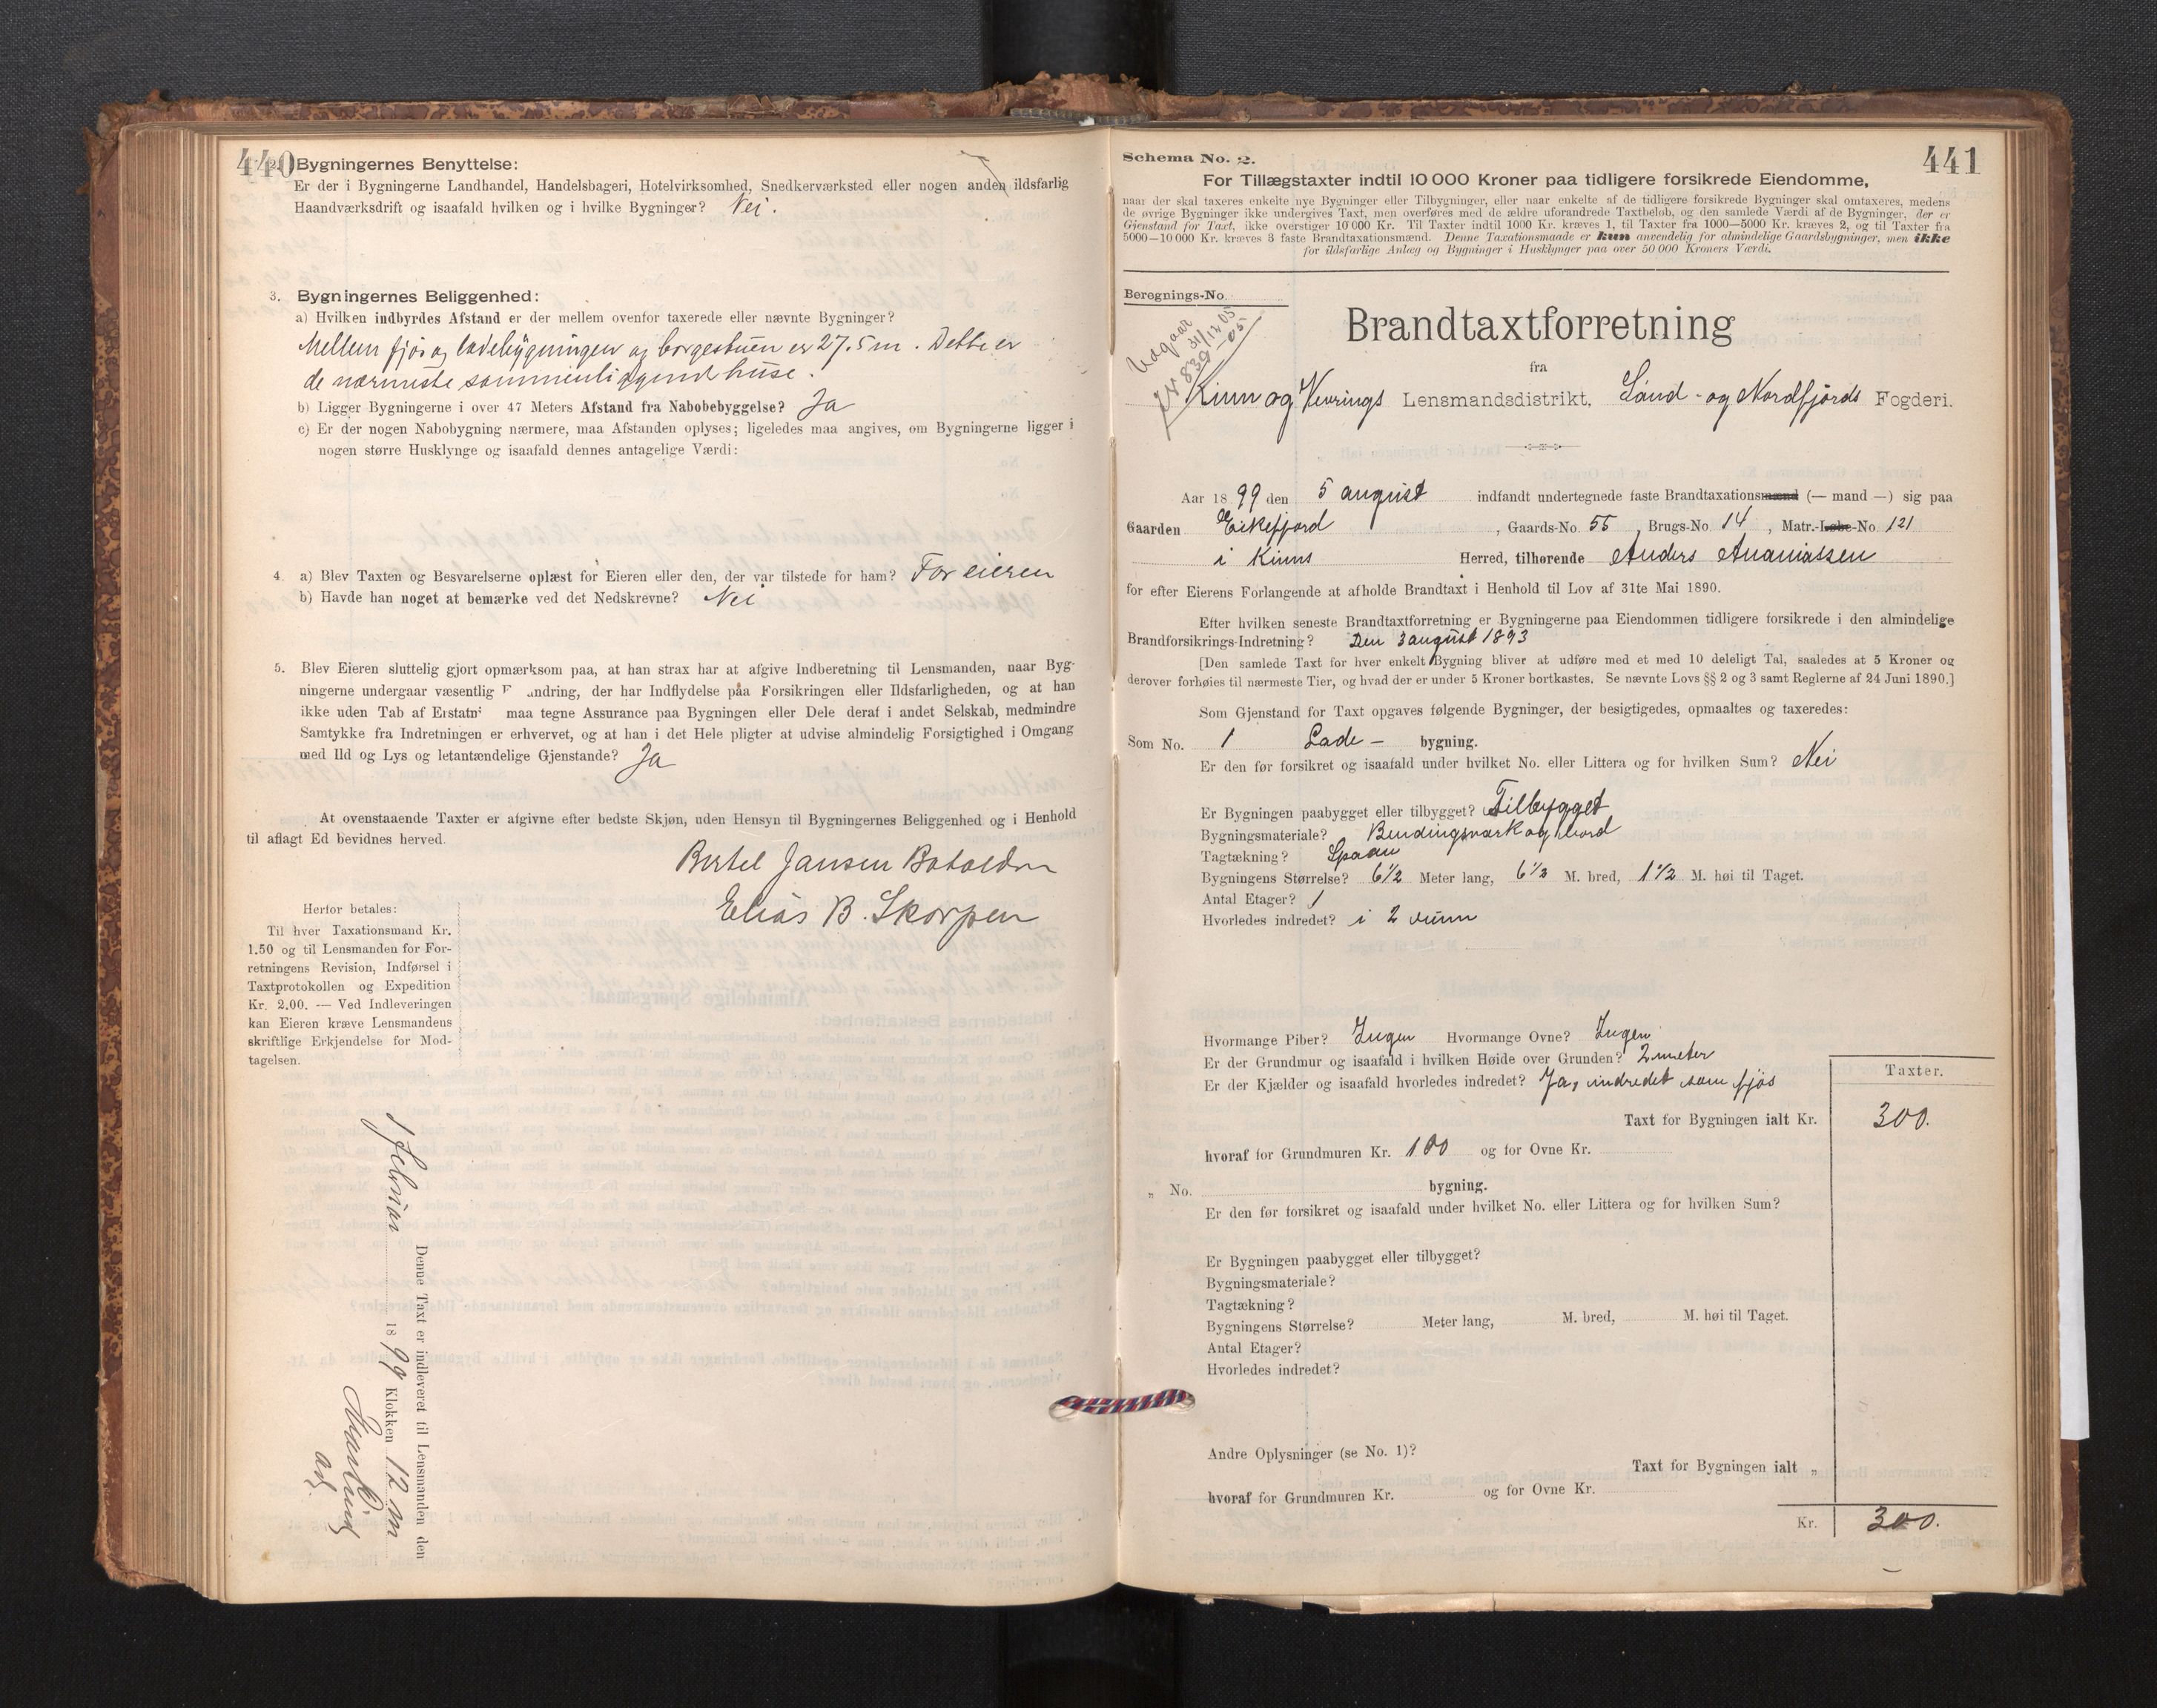 440
2. Bygningernes Benyttelse:
Er der i Bygningerne Landhandel, Handelsbageri, Hotelvirksomhed, Snedkerværksted eller nogen anden ildsfarlig
Haandværksdrift og isaafald hvilken og i hvilke Bygninger? Nei.
3. Bygningernes Beliggenhed:
a) Hvilken indbyrdes Afstand er der mellem ovenfor taxerede eller nævnte Bygninger?
Mellem fjøs og ladebygningen og borgestuen er 27.5 m. Dette er
de nærmeste sammenliggend huse.
b) Ligger Bygningerne i over 47 Meters Afstand fra Nabobebyggelse? Ja
c) Er der nogen Nabobygning nærmere, maa Afstanden oplyses; ligeledes maa angives, om Bygningerne ligger i
nogen større Husklynge og isaafald dennes antagelige Værdi:
4. a) Blev Taxten og Besvarelserne oplæst for Eieren eller den, der var tilstede for ham? For eieren
b) Havde han noget at bemærke ved det Nedskrevne? Nei
5. Blev Eieren sluttelig gjort opmærksom paa, at han strax har at afgive Indberetning til Lensmanden, naar Byg-
ningerne undergaar væsentlig F andring, der har Indflydelse paa Forsikringen eller Ildsfarligheden, og at han
ikke uden Tab af Erstatni maa tegne Assurance paa Bygningen eller Dele deraf i andet Selskab, medmindre
Samtykke fra Indretningen er erhvervet, og at han i det Hele pligter at udvise almindelig Forsigtighed i Omgang
med Ild og Lys og letantændelige Gjenstande? Ja
At ovenstaaende Taxter er afgivne efter bedste Skjøn, uden Hensyn til Bygningernes Beliggenhed og i Henhold
til aflagt Ed bevidnes herved.
Bertel Jansen
Elias B. Skorpen
Herfor betales:
Til hver Taxationsmand Kr.
1.50 og til Lensmanden for For-
retningens Revision, Indførsel i
Taxtprotokollen og Expedition
Kr. 2.00. — Ved Indleveringen
kan Eieren kræve Lensmandens
skriftlige Erkjendelse for Mod-
tagelsen.
Denne Taxt er indleveret til Lensmanden den
1 februar 1899 Klokken 12 m
441
Schema No. 2.
For Tillægstaxter indtil 10 000 Kroner paa tidligere forsikrede Eiendomme,
naar der skal taxeres enkelte nye Bygninger eller Tilbygninger, eller naar enkelte af de tidligere forsikrede Bygninger skal omtaxeres, medens
de øvrige Bygninger ikke undergives Taxt, men overføres med de ældre uforandrede Taxtbeløb, og den samlede Værdi af de Bygninger, der er
Gjenstand for Taxt, ikke overstiger 10 000 Kr. Til Taxter indtil 1000 Kr. kræves 1, til Taxter fra 1000—5000 Kr. kræves 2, og til Taxter fra
5000—10 000 Kr. kræves 3 faste Brandtaxationsmænd. Denne Taxationsmaade er kun anvendelig for almindelige Gaardsbygninger, men ikke
for ildsfarlige Anlæg og Bygninger i Husklynger paa over 50 000 Kroners Værdi.
Beregnings-No.
Udgaar
31/12 05
Brandtaxtforretning
fra
Kinn og Vevrings Lensmandsdistrikt, Sønd- og Nordfjords Fogderi.
Aar 1899 den 5 august indfandt undertegnede faste Brandtaxationsmænd (— mand —) sig paa
Gaarden Eikefjord, Gaards-No. 55, Brugs-No. 14, Matr.-Løbe-No. 121
i Kinns Herred, tilhørende Anders Ananiassen
for efter Eierens Forlangende at afholde Brandtaxt i Henhold til Lov af 31te Mai 1890.
Efter hvilken seneste Brandtaxtforretning er Bygningerne paa Eiendommen tidligere forsikrede i den almindelige
Brandforsikrings-Indretning? Den 3 august 1893
[Den samlede Taxt for hver enkelt Bygning bliver at udføre med et med 10 deleligt Tal, saaledes at 5 Kroner og
derover forhøies til nærmeste Tier, og hvad der er under 5 Kroner bortkastes. Se nævnte Lovs §§ 2 og 3 samt Reglerne af 24 Juni 1890.]
Som Gjenstand for Taxt opgaves følgende Bygninger, der besigtigedes, opmaaltes og taxeredes:
Som No. 1 Lade- bygning.
Er den før forsikret og isaafald under hvilket No. eller Littera og for hvilken Sum? Nei
Er Bygningen paabygget eller tilbygget? Tilbygget
Bygningsmateriale? Bindingsværk og bord
Tagtækning? Spaan
Bygningens Størrelse? 6 1/2 Meter lang, 6 1/2 M. bred, 1 1/2 M. høi til Taget.
Antal Etager? 1
Hvorledes indredet? i 2 rum
Hvormange Piber? Ingen Hvormange Ovne? Ingen
Er der Grundmur og isaafald i hvilken Høide over Grunden? 2 meter
Er der Kjælder og isaafald hvorledes indredet? Ja, indredet som fjøs
Taxter.
Taxt for Bygningen ialt Kr. 300.
hvoraf for Grundmuren Kr. 100 og for Ovne Kr.
„ No. bygning.
Er den før forsikret og isaafald under hvilket No. eller Littera og for hvilken Sum?
Er Bygningen paabygget eller tilbygget?
Bygningsmateriale?
Tagtækning?
Bygningens Størrelse? Meter lang, M. bred, M. høi til Taget.
Antal Etager?
Hvorledes indredet?
Andre Oplysninger (se No. 1)?
Taxt for Bygningen ialt „
hvoraf for Grundmuren Kr. og for Ovne Kr.
Kr. 300.